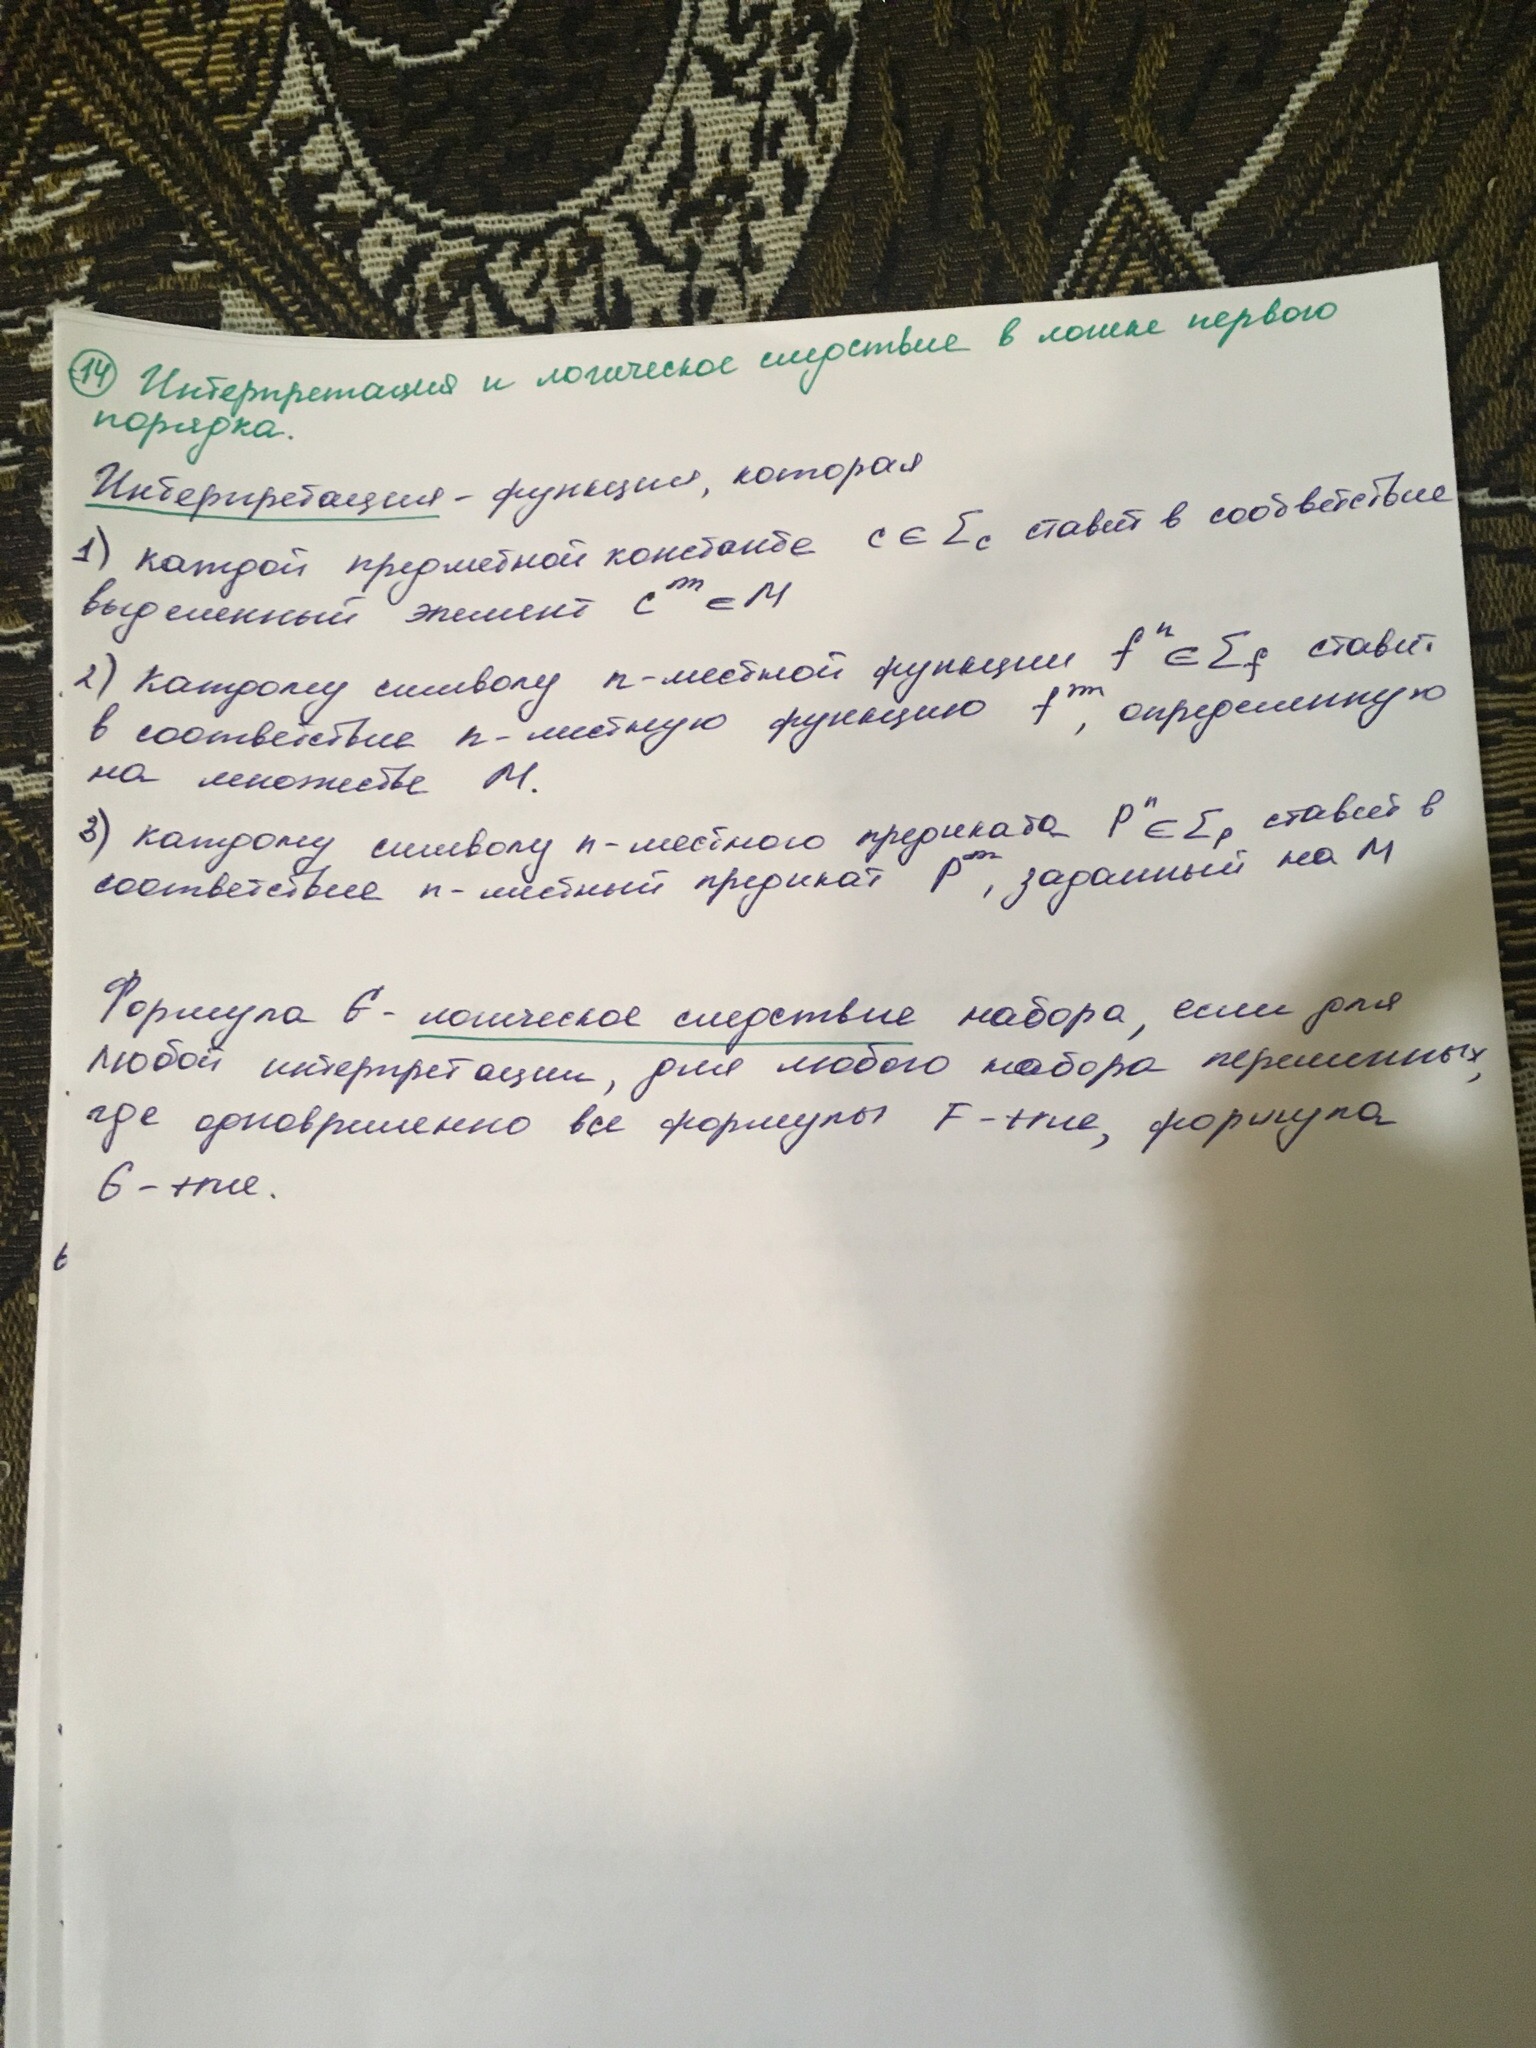 14 Интерпретация и логическое следствие в логике первого
порядка.
Интерпретация - функция, которая
1) каждой предметной константе c ∈ Σc ставит в соответствие
выделенный элемент c^m ∈ M
2) каждому символу n-местной функции f^n ∈ Σf ставит
в соответствие n-местную функцию f^m, определенную
на множестве M.
3) каждому символу n-местного предиката P^n ∈ Σp ставит в
соответствие n-местный предикат P^m, заданный на M
Формула G - логическое следствие набора, если для
любой интерпретации, для любого набора переменных,
где одновременно все формулы F - true, формула
G - true.